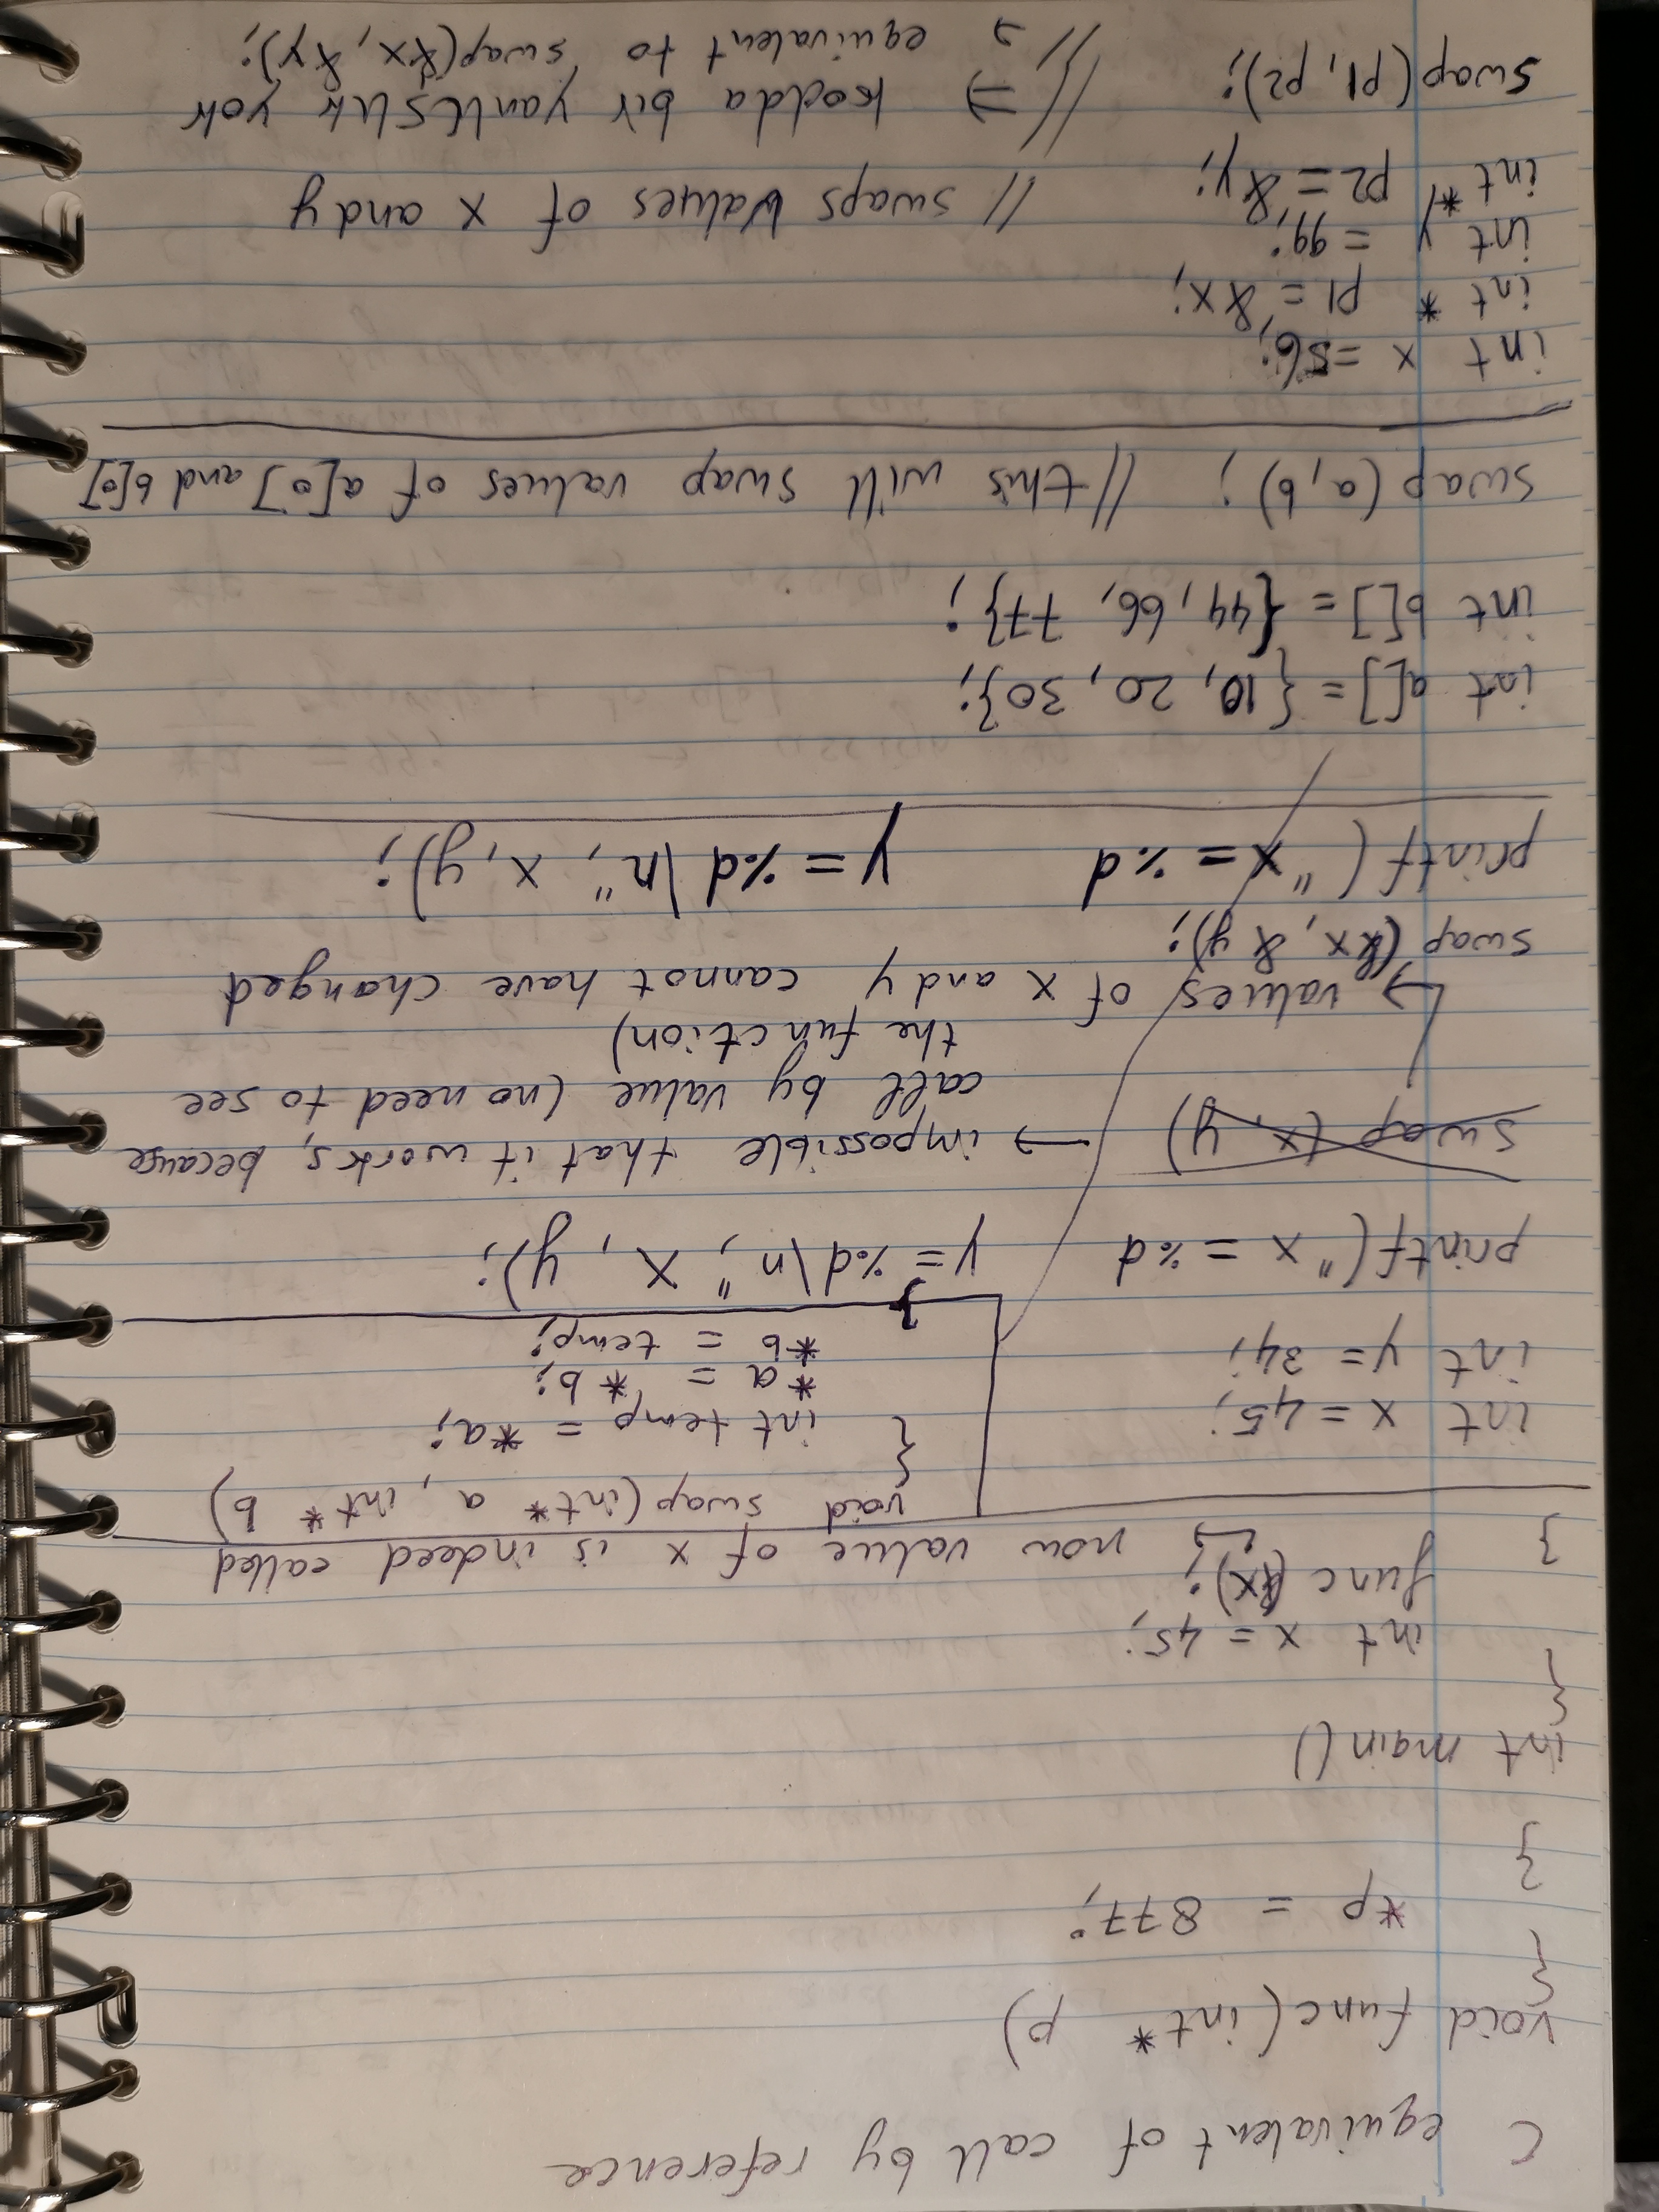 C equivalent of call by reference
void func(int* p)
{
*p = 877;
}
int main()
{
int x = 45;
func(&x);
} ↳ now value of x is indeed called
void swap(int* a, int* b)
{ int temp = *a;
*a = *b;
*b = temp;
}
int x = 45;
int y = 34;
printf("x = %d y = %d\n", x, y);
swap(x, y) → impossible that it works, because
call by value (no need to see
the function)
↳ values of x and y cannot have changed
swap(&x, &y);
printf("x = %d y = %d\n", x, y);
int a[] = {10, 20, 30};
int b[] = {44, 66, 77};
swap(a, b); //this will swap values of a[0] and b[0]
int x = 56;
int* p1 = &x;
int y = 99;
int* p2 = &y; // swaps values of x and y
swap(p1, p2); // ⇒ kodda bir yanlışlık yok
// → equivalent to swap(&x, &y);